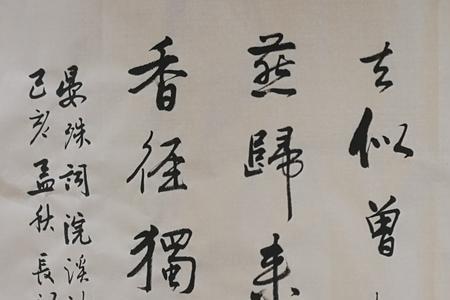 去似曾
燕歸來
香徑獨
晏殊詞浣溪沙
己亥孟秋長